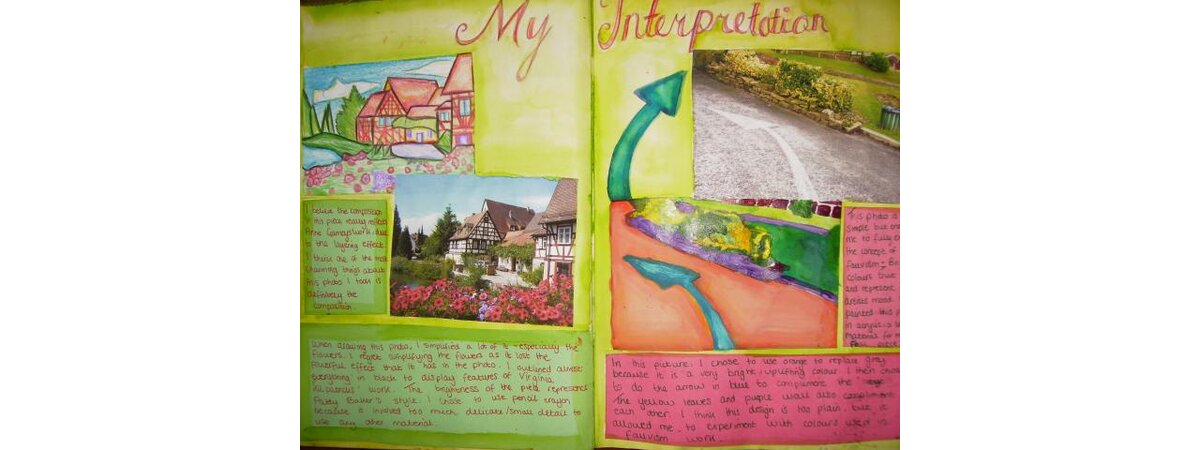 My Interpretation
I believe the composition
in this piece really reflects
Anne work due
to the layering effect.
I think one of the most
charming things about
this photo I took is
definitely the
composition.
When drawing this photo, I simplified a lot of it - especially the
flowers. I regret simplifying the flowers as it lost the
powerful effect that it has in the photo. I outlined almost
everything in black to display features of Virginia
work. The brightness of the piece represents
Patty Baker's style. I chose to use pencil crayon
because it involved too much delicate/small detail to
use any other material.
This photo is
simple but
me to fully
the concept of
Fauvism.
colours
and represent
artists mood.
painted this
in acrylic
material for
piece
In this picture, I chose to use orange to replace grey
because it is a very bright, uplifting colour. I then chose
to do the arrow in blue to complement the
The yellow leaves and purple wall also compliment
each other. I think this design is too plain but it
allowed me to experiment with colours used in
fauvism work.